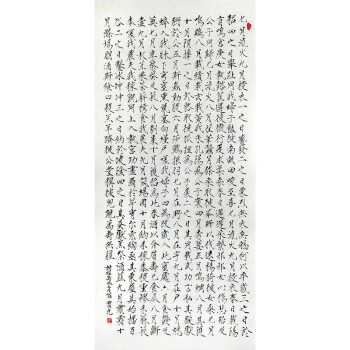 七月流火九月授衣一之日觱發二之日栗烈無衣無褐何以卒歲三之日於
耜四之日舉趾同我婦子饁彼南畝田畯至喜七月流火九月授衣春日載陽
有鳴倉庚女執懿筐遵彼微行爰求柔桑春日遲遲采蘩祁祁女心傷悲殆及
公子同歸七月流火八月萑葦蠶月條桑取彼斧斨以伐遠揚猗彼女桑七月
鳴鵙八月載績載玄載黃我朱孔陽為公子裳四月秀葽五月鳴蜩八月其穫
十月隕蘀一之日於貉取彼狐狸為公子裘二之日其同載纘武功言私其豵獻
豜於公五月斯螽動股六月莎雞振羽七月在野八月在宇九月在戶十月蟋
蟀入我牀下穹窒熏鼠塞向墐戶嗟我婦子曰為改歲入此室處六月食鬱及
薁七月亨葵及菽八月剝棗十月穫稻為此春酒以介眉壽七月食瓜八月斷
壺九月叔苴采荼薪樗食我農夫九月築場圃十月納禾稼黍稷重穋禾麻菽
麥嗟我農夫我稼既同上入執宮功晝爾于茅宵爾索綯亟其乘屋其始播百
穀二之日鑿冰沖沖三之日納於凌陰四之日其蚤獻羔祭韭九月肅霜十
月滌場朋酒斯饗曰殺羔羊躋彼公堂稱彼兕觥萬壽無疆